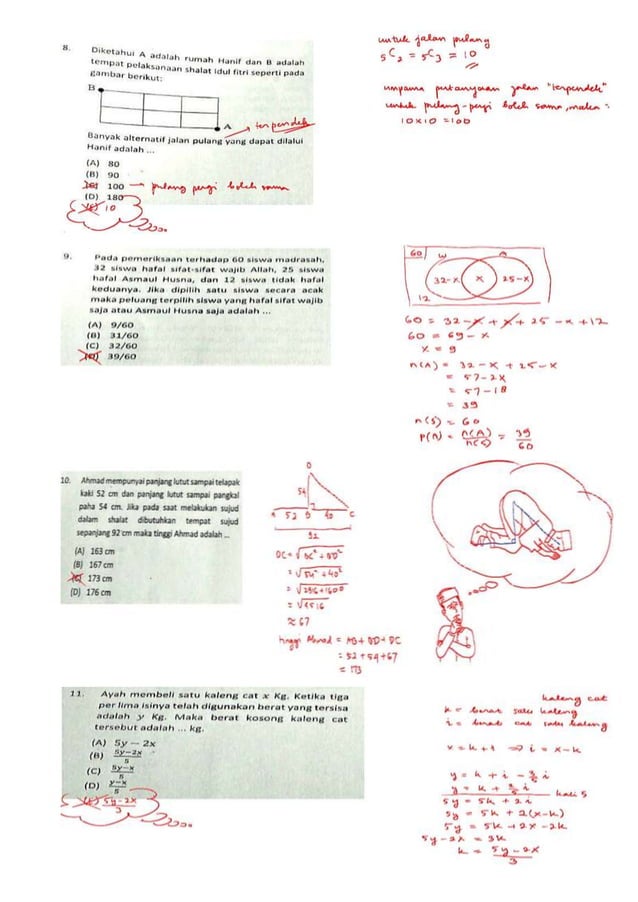 8. Diketahui A adalah rumah Hanif dan B adalah
tempat pelaksanaan shalat Idul fitri seperti pada
gambar berikut:
B
A → terpendek
Banyak alternatif jalan pulang yang dapat dilalui
Hanif adalah ...
(A) 80
(B) 90
(C) 100 → pulang pergi boleh sama
(D) 180
(E) 10
untuk jalan pulang
5C2 = 5C3 = 10
umpama pertanyaan jalan "terpendek"
untuk pulang-pergi boleh sama, maka :
10x10 = 100
9. Pada pemeriksaan terhadap 60 siswa madrasah,
32 siswa hafal sifat-sifat wajib Allah, 25 siswa
hafal Asmaul Husna, dan 12 siswa tidak hafal
keduanya. Jika dipilih satu siswa secara acak
maka peluang terpilih siswa yang hafal sifat wajib
saja atau Asmaul Husna saja adalah ...
(A) 9/60
(B) 31/60
(C) 32/60
(D) 39/60
60 W A
32-x x 25-x
12
60 = 32-x + x + 25-x + 12
60 = 69 - x
x = 9
n(A) = 32-x + 25-x
= 57-2x
= 57-18
= 39
n(S) = 60
P(A) = n(A)/n(S) = 39/60
10. Ahmad mempunyai panjang lutut sampai telapak
kaki 52 cm dan panjang lutut sampai pangkal
paha 54 cm. Jika pada saat melakukan sujud
dalam shalat dibutuhkan tempat sujud
sepanjang 92 cm maka tinggi Ahmad adalah ...
(A) 163 cm
(B) 167 cm
(C) 173 cm
(D) 176 cm
D
54
A 52 B 40 C
92
DC = √BC² + BD²
= √54² + 40²
= √2916+1600
= √4516
≈ 67
tinggi Ahmad = AB + BD + DC
= 52 + 54 + 67
= 173
11. Ayah membeli satu kaleng cat x Kg. Ketika tiga
per lima isinya telah digunakan berat yang tersisa
adalah y Kg. Maka berat kosong kaleng cat
tersebut adalah ... kg.
(A) 5y − 2x
(B) 5y−2x/5
(C) 5y−x/5
(D) y−x/5
(E) 5y-2x/3
kaleng cat
k = berat satu kaleng
i = berat cat satu kaleng
x = k + i ⇒ i = x-k
y = k + i - 3/5 i
y = k + 2/5 i
kali 5
5y = 5k + 2i
5y = 5k + 2(x-k)
5y = 5k + 2x - 2k
5y - 2x = 3k
k = 5y - 2x/3